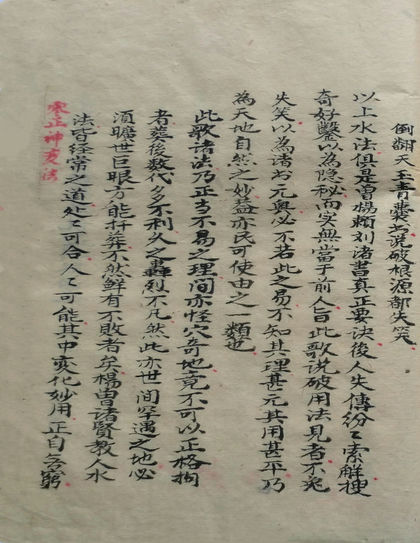 倒翻天玉青囊书說破根源都失笑
以上水法俱是曾楊賴刘諸書真正要決後人失傳紛〻索解搜
奇好鑿以為隐秘而实無當于前人旨此歌说破用法見者不免
失笑以為諸书元奥必不若此之易不知其理甚元其用甚平乃
為天地自然之妙蓋亦民可使由之一類也
此歌诸法乃正当不易之理間亦怪穴奇地竟不可以正格拘
者葬後数代多不利久之轟烈不凡然此亦世間罕遇之地必
須曠世巨眼方能扦葬不然鮮有不敗者矣楊曾諸賢教人水
法皆經常之道処〻可合人〻可能其中变化妙用正自無窮